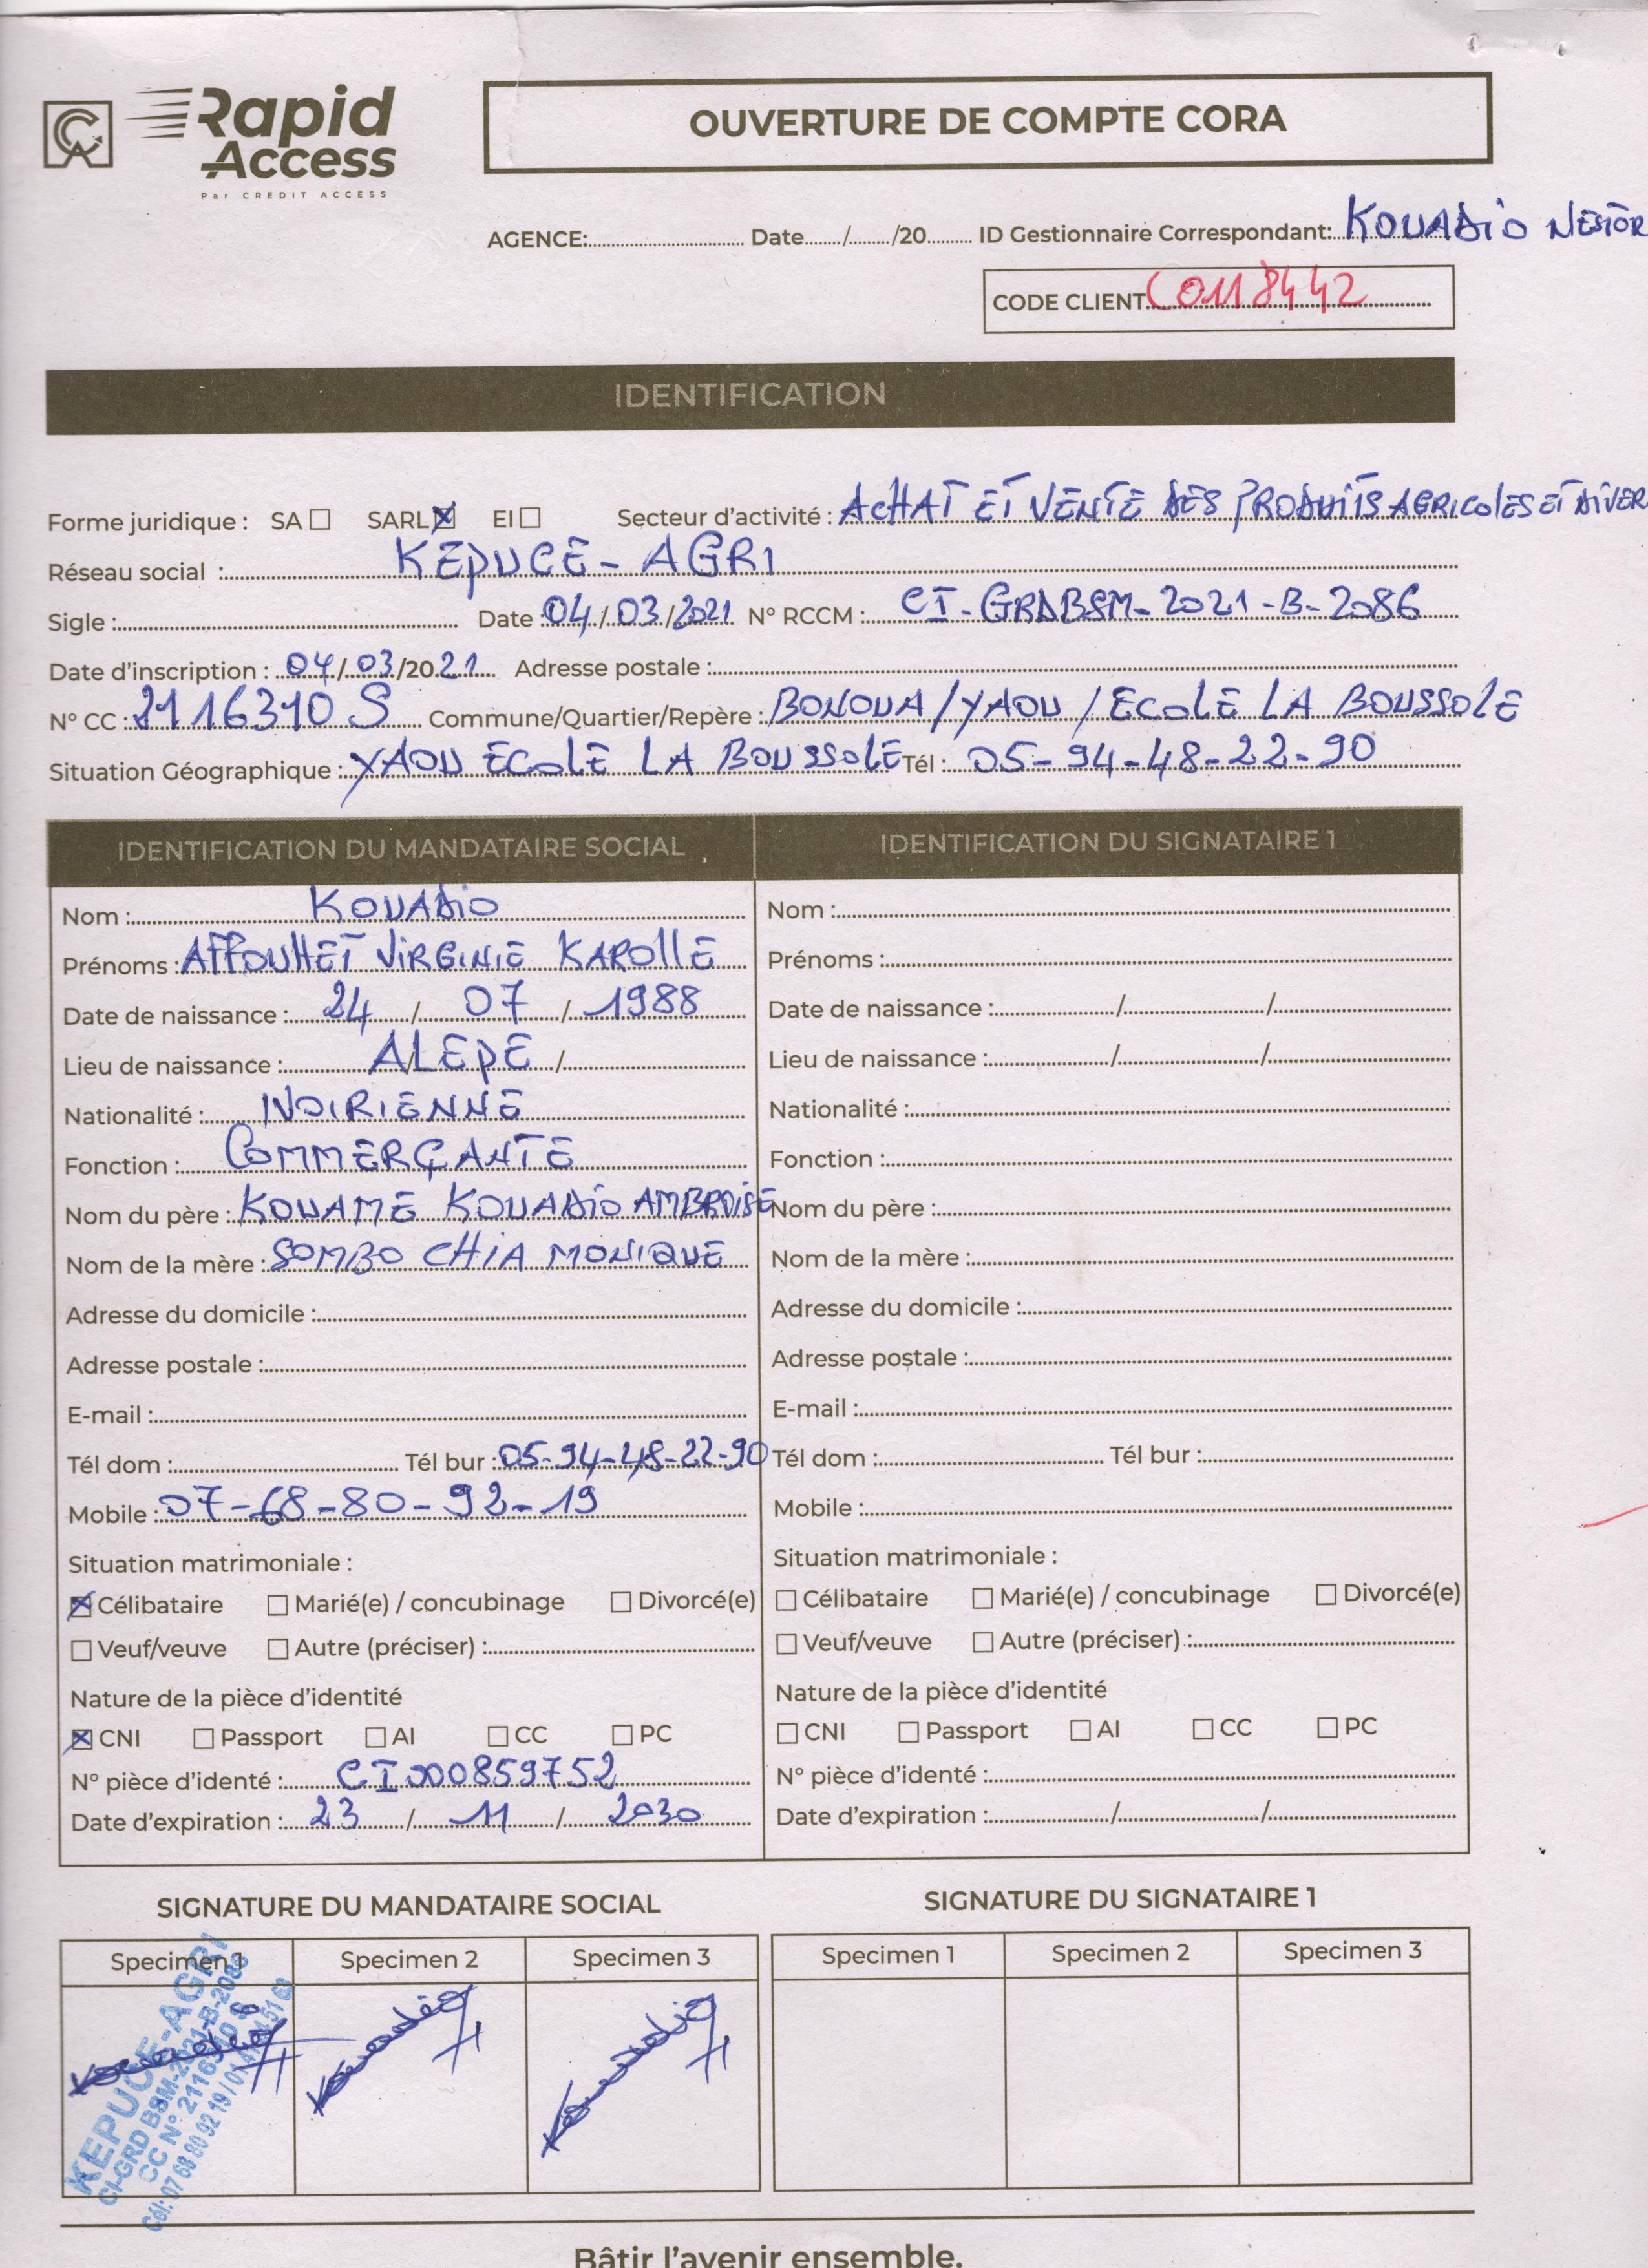 CA Rapid Access
Par CREDIT ACCESS
OUVERTURE DE COMPTE CORA
AGENCE:........ Date....../....../20...... ID Gestionnaire Correspondant: KOUADIO NESTOR
CODE CLIENT C0118442
IDENTIFICATION
Forme juridique : SA ☐ SARL ☒ EI ☐ Secteur d'activité : ACHAT ET VENTE DES PRODUITS AGRICOLES ET DIVER
Réseau social : KEPUCE - AGRI
Sigle :........ Date : 04/03/2021 N° RCCM : CI-GRDBSM-2021-B-2086
Date d'inscription : 04/03/2021 Adresse postale :........
N° CC : 2116310 S Commune/Quartier/Repère : BONOUA/YAOU/ECOLE LA BOUSSOLE
Situation Géographique : YAOU ECOLE LA BOUSSOLE Tél : 05-94-48-22-90
IDENTIFICATION DU MANDATAIRE SOCIAL
Nom : KOUADIO
Prénoms : AFFOUHET VIRGINIE KAROLLE
Date de naissance : 24 / 07 / 1988
Lieu de naissance : ALEPE /
Nationalité : IVOIRIENNE
Fonction : COMMERÇANTE
Nom du père : KOUAME KOUADIO AMBROISE
Nom de la mère : SOMBO CHIA MONIQUE
Adresse du domicile :........
Adresse postale :........
E-mail :........
Tél dom :........ Tél bur : 05-94-48-22-90
Mobile : 07-68-80-92-19
Situation matrimoniale :
☒ Célibataire ☐ Marié(e) / concubinage ☐ Divorcé(e)
☐ Veuf/veuve ☐ Autre (préciser) :........
Nature de la pièce d'identité
☒ CNI ☐ Passport ☐ AI ☐ CC ☐ PC
N° pièce d'identé : CI000859752
Date d'expiration : 23 / 11 / 2030
IDENTIFICATION DU SIGNATAIRE 1
Nom :........
Prénoms :........
Date de naissance :......../......../........
Lieu de naissance :......../......../........
Nationalité :........
Fonction :........
Nom du père :........
Nom de la mère :........
Adresse du domicile :........
Adresse postale :........
E-mail :........
Tél dom :........ Tél bur :........
Mobile :........
Situation matrimoniale :
☐ Célibataire ☐ Marié(e) / concubinage ☐ Divorcé(e)
☐ Veuf/veuve ☐ Autre (préciser) :........
Nature de la pièce d'identité
☐ CNI ☐ Passport ☐ AI ☐ CC ☐ PC
N° pièce d'identé :........
Date d'expiration :......../......../........
SIGNATURE DU MANDATAIRE SOCIAL
Specimen 1 Specimen 2 Specimen 3
KEPUCE-AGRI
CI-GRD BSM-2021-B-2086
CC N°: 2116310 S
Cél: 07 68 80 92 19 /
SIGNATURE DU SIGNATAIRE 1
Specimen 1 Specimen 2 Specimen 3
Bâtir l'avenir ensemble.